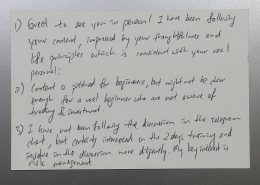 1) Great to see you in person! I have been following
your content, impressed by your thoughtfulness and
life principles which is consistent with your real
personal!
2) Content is perfect for beginners, but might not be clear
enough for a real beginner who are not aware of
trading & investment.
3) I have not been following the discussion in the Telegram
chat, but certainly interested in the 2 day training and
involve in the discussion more diligently. My key interest is
risk management